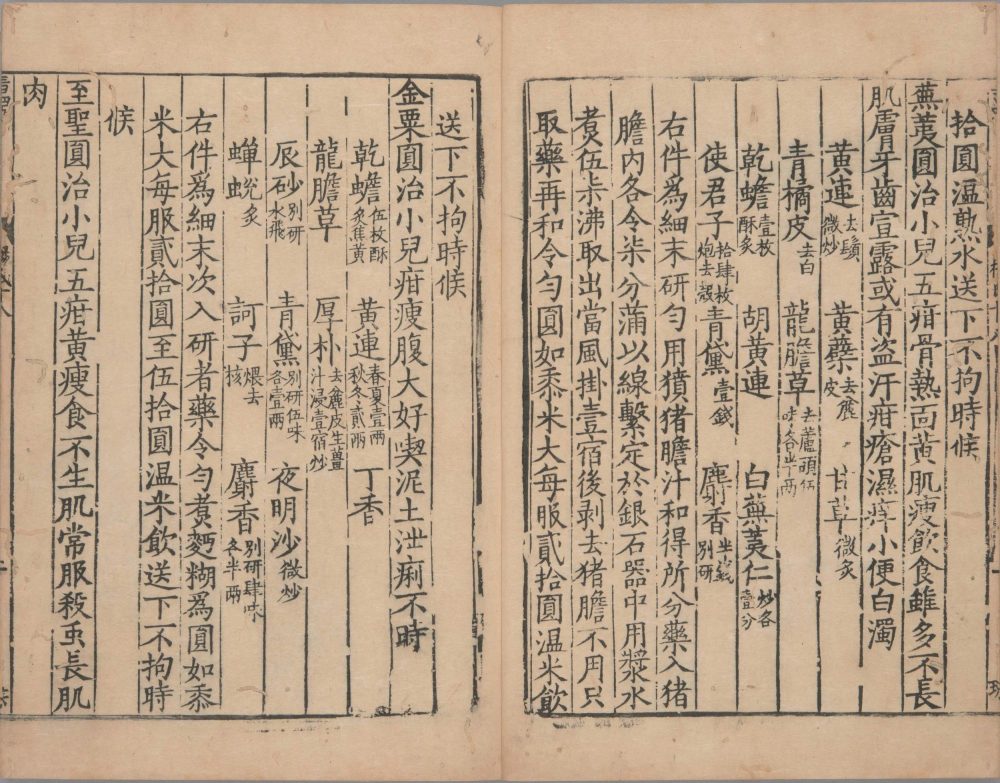 拾圓温熟水送下不拘時候
蕪荑圓治小兒五疳骨熱面黄肌瘦飲食雖多不長
肌膚牙齒宣露或有盗汗疳瘡濕痒小便白濁
黄連去鬚微炒 黄蘗去麄皮 甘草微炙
青橘皮去白 龍膽草去蘆頭伍味各半兩
乾蟾壹枚酥炙 胡黄連 白蕪荑仁炒各壹分
使君子拾肆枚炮去殻 青黛壹錢 麝香半錢别研
右件爲細末研匀用獖猪膽汁和得所分藥入猪
膽内各令柒分滿以線繫定於銀石器中用漿水
煑伍柒沸取出當風掛壹宿後剥去猪膽不用只
取藥再和令匀圓如黍米大每服貳拾圓温米飲
送下不拘時候
金粟圓治小兒疳瘦腹大好喫泥土泄痢不時
乾蟾伍枚酥炙焦黄 黄連春夏壹兩秋冬貳兩 丁香
龍膽草 厚朴去麄皮生薑汁浸壹宿炒
辰砂别研水飛 青黛别研伍味各壹兩 夜明沙微炒
蟬蛻炙 訶子煨去核 麝香别研肆味各半兩
右件爲細末次入研者藥令匀煑麪糊爲圓如黍
米大每服貳拾圓至伍拾圓温米飲送下不拘時
候
至聖圓治小兒五疳黄瘦食不生肌常服殺䖝長肌
肉